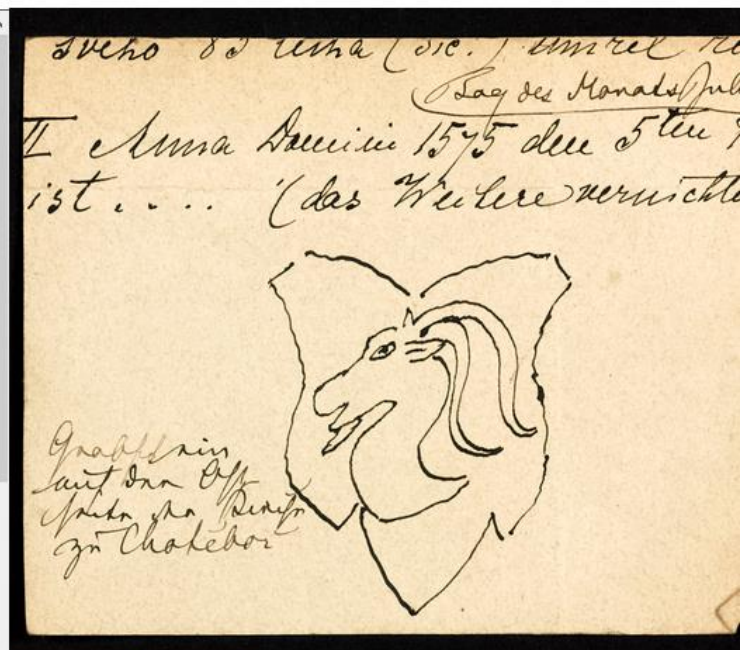 sveho 83 leta (sic.) umřel
Tag des Monats Juli
II Anna Domini 1575 den 5ten
ist .... (das Weitere vernichte
Grabstein
auf der Ost
seite der Kirche
zu Chotěboř